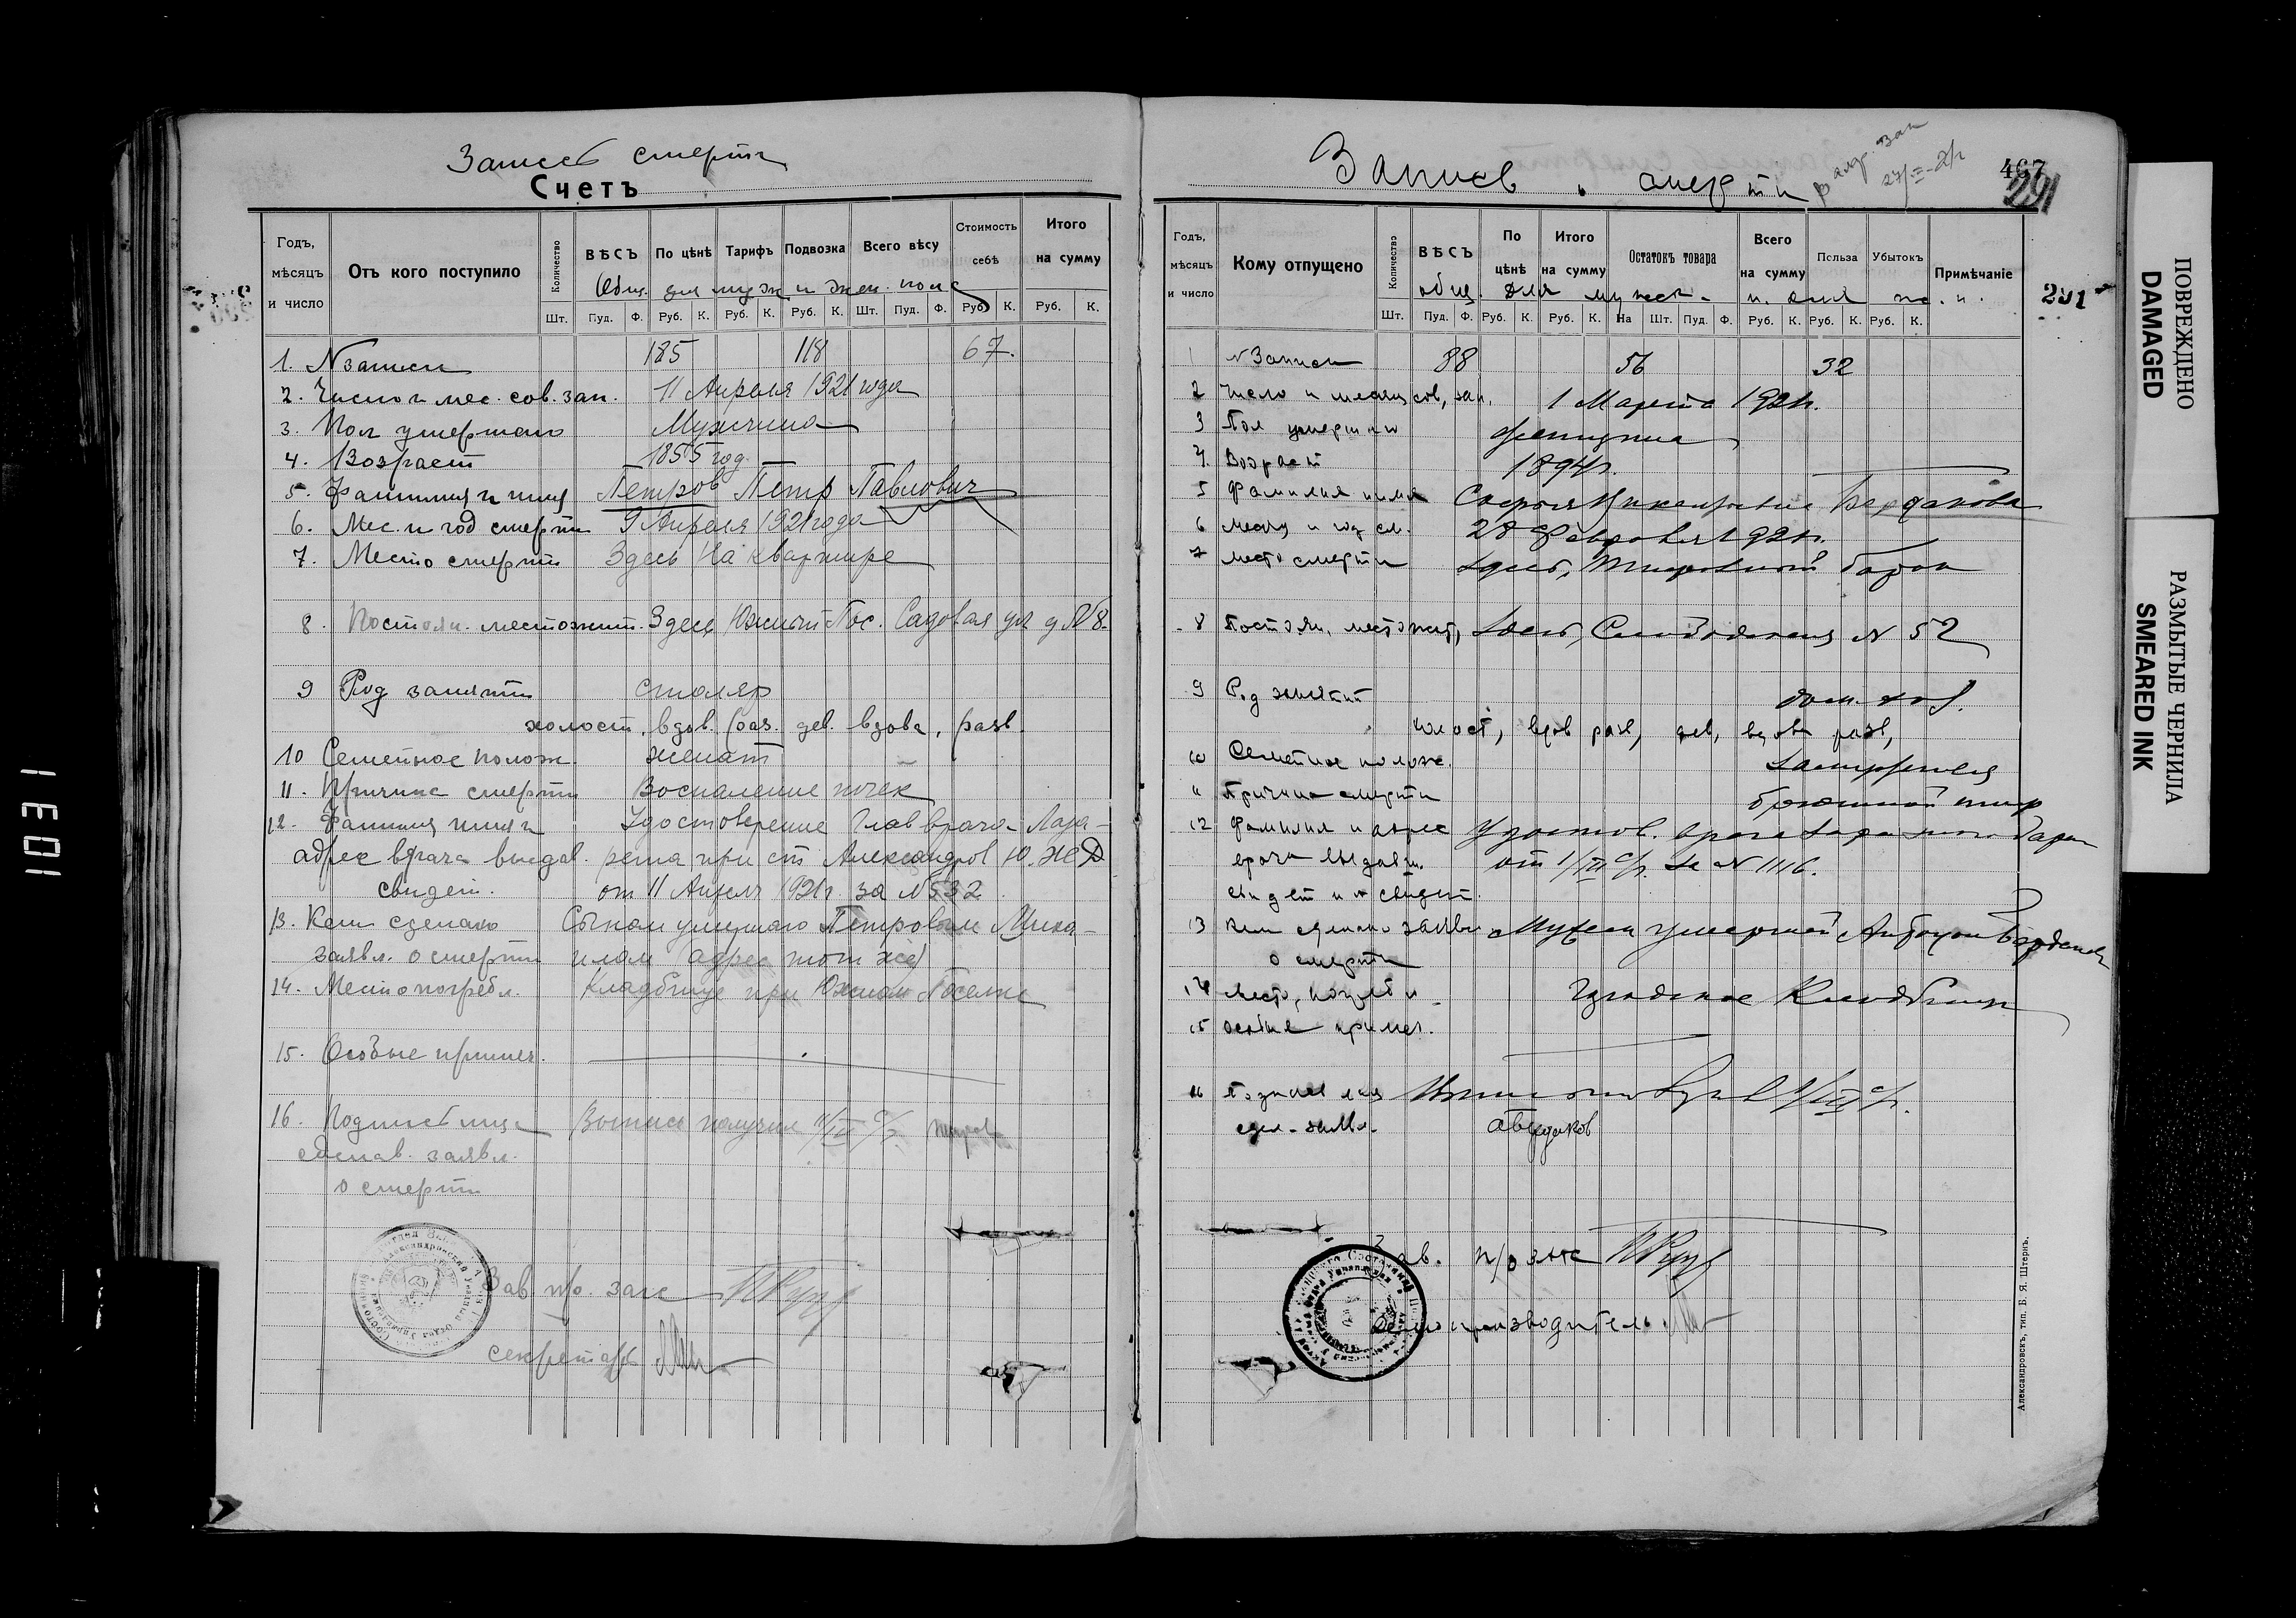 Запись смерти
Счетъ
Годъ, мѣсяцъ и число
Отъ кого поступило
Количество
ВѢСЪ
По цѣнѣ
Тарифъ
Подвозка
Всего вѣсу
Стоимость себѣ
Итого на сумму
Общ. для муж и жен. пола
Шт. Пуд. Ф. Руб. К. Руб. К. Руб. К. Шт. Пуд. Ф. Руб. К. Руб. К.
1. N записи 185 118 67.
2. Число и мес. сов. зап. 11 Апреля 1921 года
3. Пол умершаго Мужчина
4. Возраст 1855 год.
5. Фамилия и имя Петров Петр Павлович
6. Мес. и год смерти 9 Апреля 1921 года
7. Место смерти Здесь на квартире
8. Постоян. местожит. Здесь Южный Пос. Садовая ул д N 8.
9 Род занятий столяр
холост, вдов. раз. дев. вдова, разв.
10 Семейное полож. женат
11. Причина смерти Воспаление почек
12. Фамилия имя и Удостоверение Глав врача Лаза-
адрес врача выдав. рета при ст Александров Ю. Ж Д
свидет. от 11 Апреля 1921 г. за N 532
13. Кем сделано Сыном умершаго Петровым Миха-
заявл. о смерти илом (адрес тот же)
14. Место погребл. Кладбище при Южном Поселке
15. Особые примеч.
16. Подпись лица Выпись получил 11/IV с/г.
сделав. заявл.
о смерти
Зав п/о. загс
секретарь
Запись смерти
27/III-21г
467
291
291
Годъ, мѣсяцъ и число
Кому отпущено
Количество
ВѢСЪ
По цѣнѣ
Итого на сумму
Остатокъ товара
Всего на сумму
Польза
Убытокъ
Примѣчаніе
общ. для мужск. и для ж. п.
Шт. Пуд. Ф. Руб. К. Руб. К. На Шт. Пуд. Ф. Руб. К. Руб. К. Руб. К.
1 N Записи 88 56 32
2 Число и месяц сов, зап. 1 Марта 1921г.
3 Пол умершаго женщина
4. Возраст 1894г.
5 Фамилия имя Бердакова
6 месяц и год см. 28 Февраля 1921г.
7 место смерти здесь, барак
8 Постоян. местожит, здесь, Слободская N 52
9 Род занятий дом. хоз.
холост, вдов разв, дев, вдова разв,
10 Семейное полож. замужняя
11 Причина смерти брюшной тиф
12 Фамилия и адрес Удостов. врача
врача выдавш. от 1/III с/г. за N 1116.
свидет и N свидет.
13 Кем сделано заявл Мужем умершей
о смерти
14 Место, погреб н. Градское Кладбище
15 особые примеч.
16 Подпись лица 1/III с/г.
сдел. заявл. Абердаков
Зав. п/о загс
Делопроизводитель
Александровскъ, тип. Б. Я. Штернъ.
ПОВРЕЖДЕНО
DAMAGED
РАЗМЫТЫЕ ЧЕРНИЛА
SMEARED INK
1031